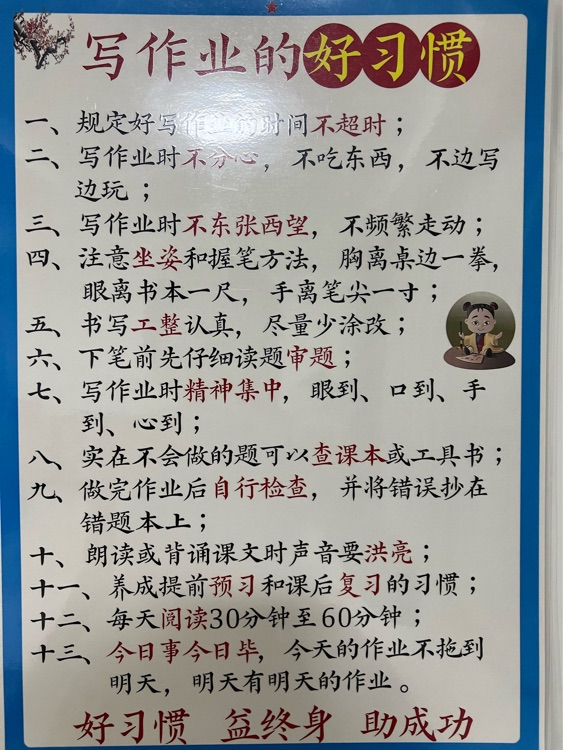 写作业的好习惯
一、规定好写作业的时间不超时；
二、写作业时不分心，不吃东西，不边写
边玩；
三、写作业时不东张西望，不频繁走动；
四、注意坐姿和握笔方法，胸离桌边一拳，
眼离书本一尺，手离笔尖一寸；
五、书写工整认真，尽量少涂改；
六、下笔前先仔细读题审题；
七、写作业时精神集中，眼到、口到、手
到、心到；
八、实在不会做的题可以查课本或工具书；
九、做完作业后自行检查，并将错误抄在
错题本上；
十、朗读或背诵课文时声音要洪亮；
十一、养成提前预习和课后复习的习惯；
十二、每天阅读30分钟至60分钟；
十三、今日事今日毕，今天的作业不拖到
明天，明天有明天的作业。
好习惯 益终身 助成功